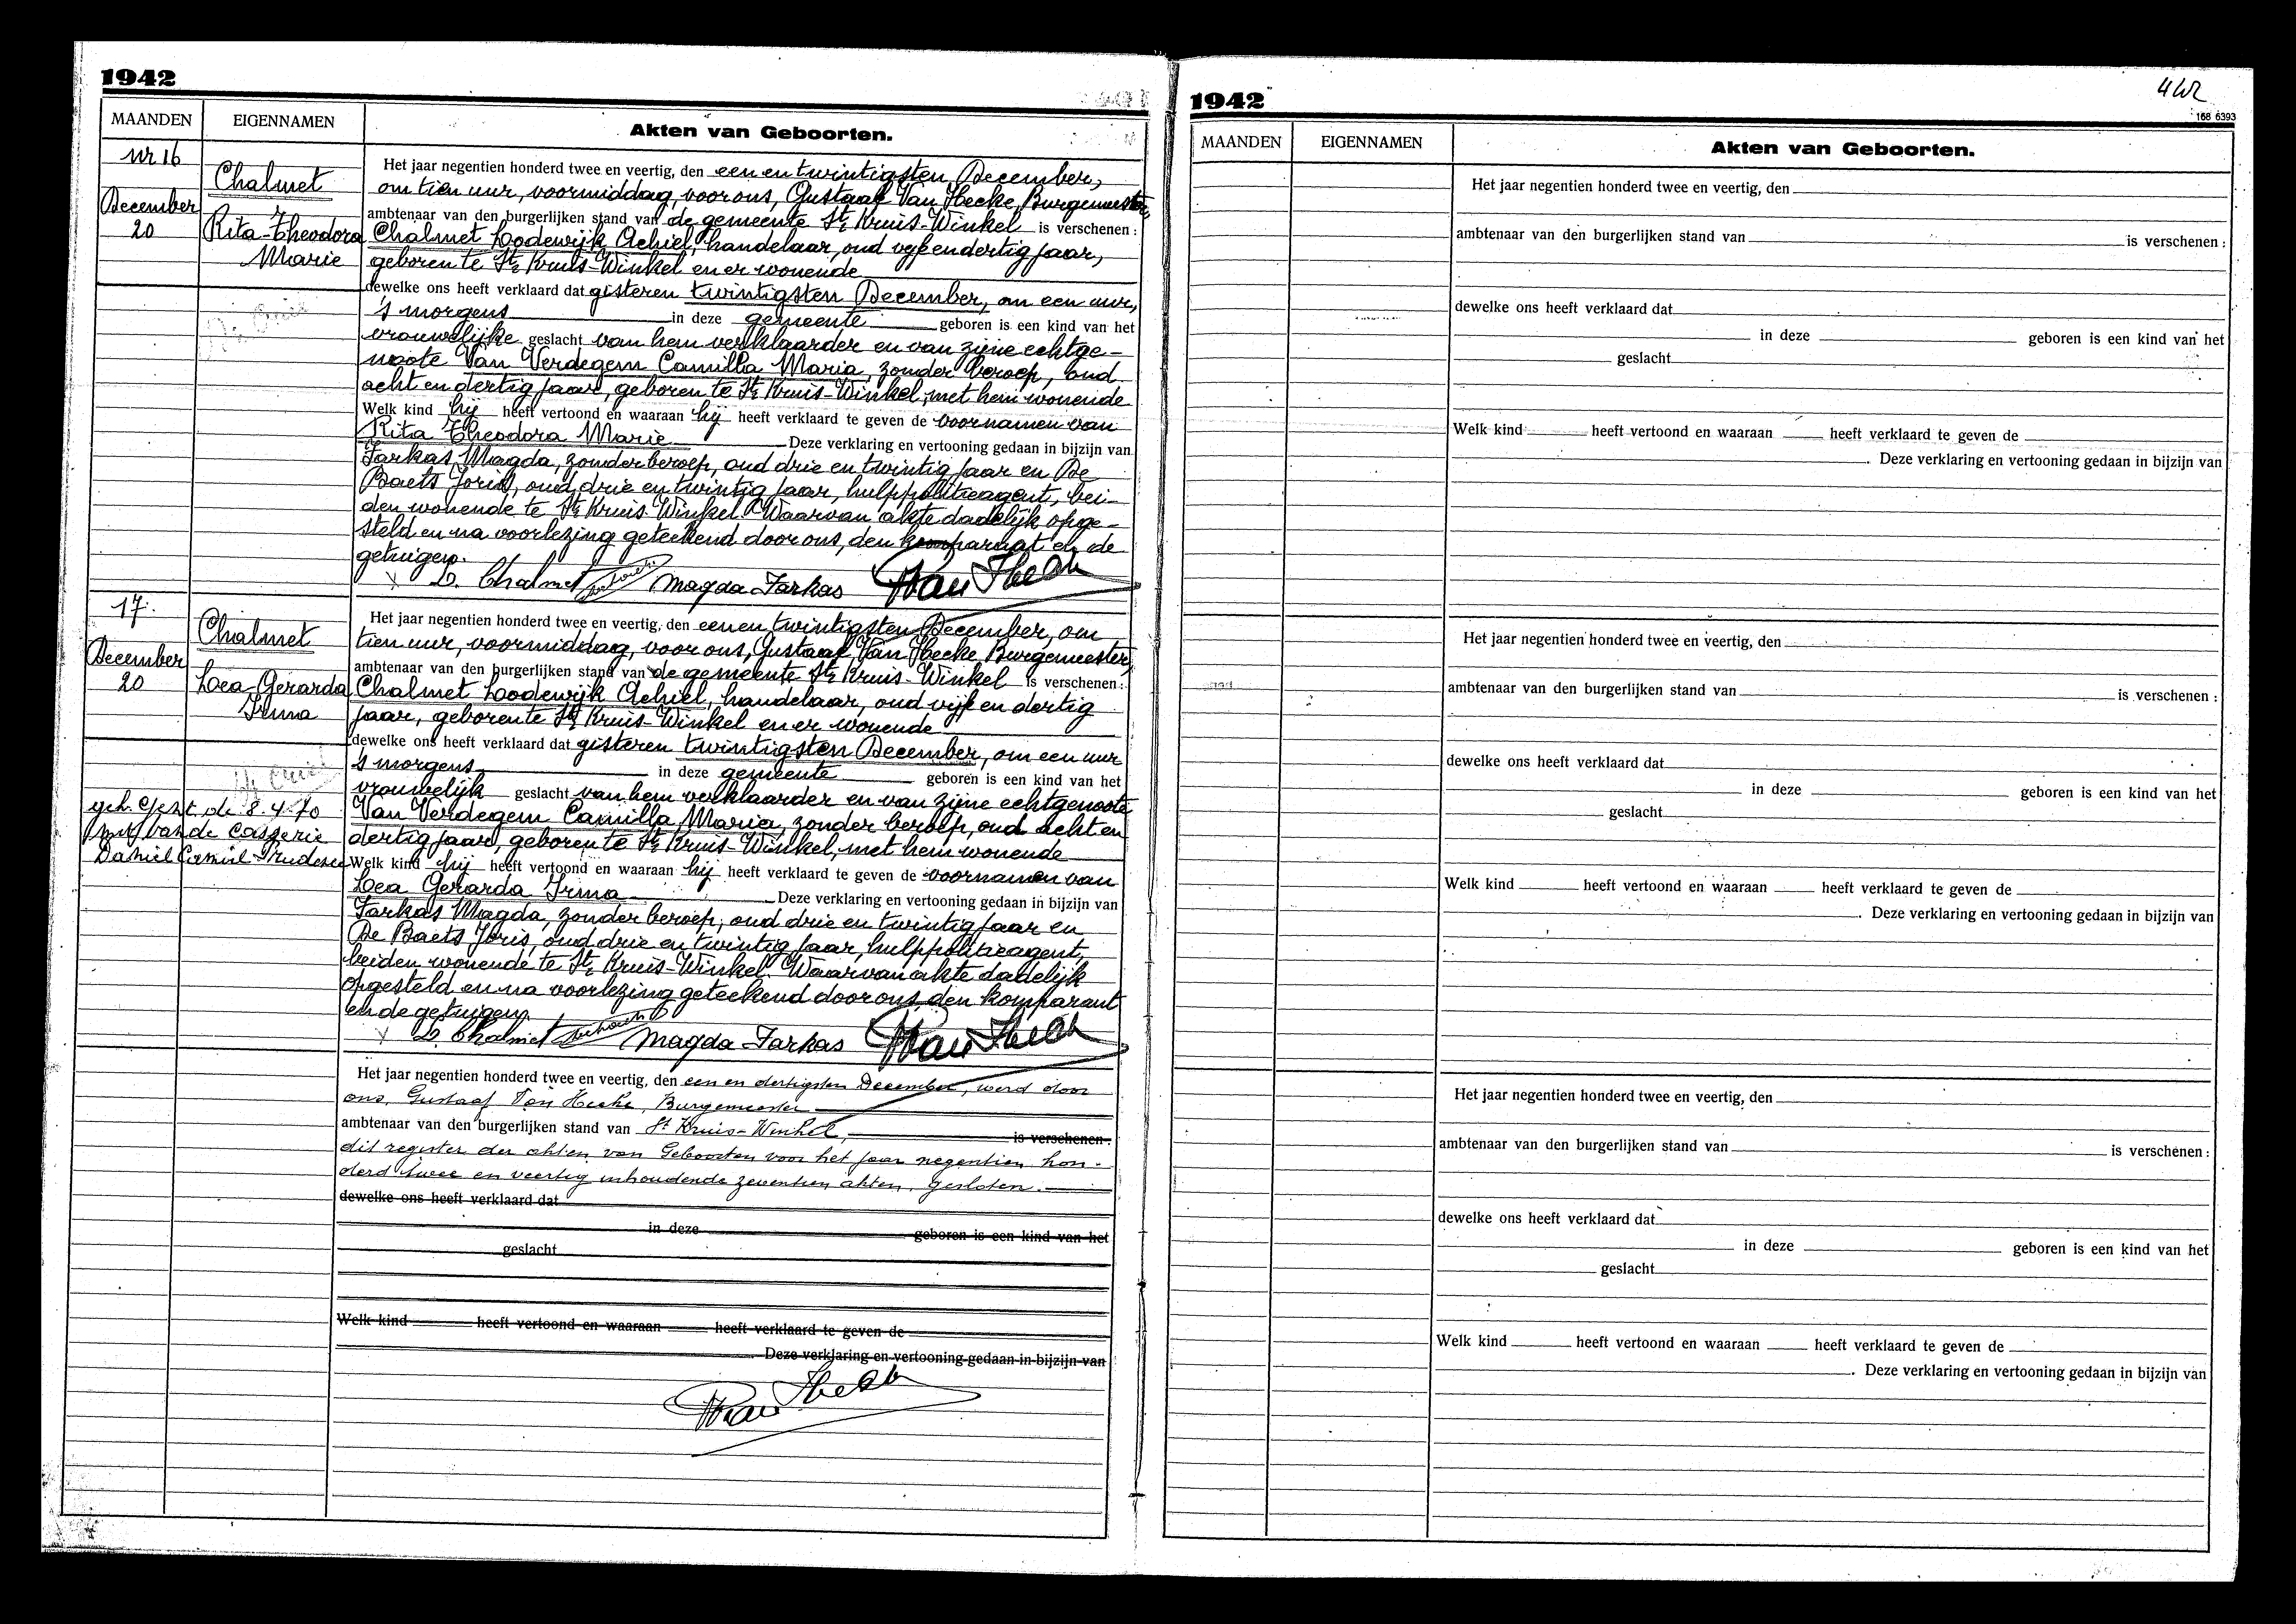 1942
MAANDEN
EIGENNAMEN
Akten van Geboorten.
Nr 16
Chalmet
December
20
Rita-Theodora
Marie
Het jaar negentien honderd twee en veertig, den een en twintigsten December,
om tien uur, voormiddag, voor ons, Gustaaf Van Hecke, Burgemeester,
ambtenaar van den burgerlijken stand van de gemeente St Kruis-Winkel is verschenen:
Chalmet Lodewijk Achiel, handelaar, oud vijf en dertig jaar,
geboren te St Kruis-Winkel en er wonende
dewelke ons heeft verklaard dat gisteren twintigsten December, om een uur,
's morgens in deze gemeente geboren is een kind van het
vrouwelijke geslacht van hem verklaarder en van zijne echtge-
noote Van Verdegem Camilla Maria, zonder beroep, oud
acht en dertig jaar, geboren te St Kruis-Winkel, met hem wonende
Welk kind hij heeft vertoond en waaraan hij heeft verklaard te geven de voornamen van
Rita Theodora Marie Deze verklaring en vertooning gedaan in bijzijn van
Farkas Magda, zonder beroep, oud drie en twintig jaar en De
Baets Joris, oud drie en twintig jaar, hulppolitieagent, bei-
den wonende te St Kruis-Winkel. Waarvan akte dadelijk opge-
steld en na voorlezing geteekend door ons, den komparant en de
getuigen.
L. Chalmet Magda Farkas Van Hecke
17.
Chalmet
December
20
Lea-Gerarda
Irma
geh. Gent de 8.4.70
met Van de Casserie
Daniel Camiel
Het jaar negentien honderd twee en veertig, den een en twintigsten December, om
tien uur, voormiddag, voor ons, Gustaaf Van Hecke Burgemeester,
ambtenaar van den burgerlijken stand van de gemeente St Kruis-Winkel is verschenen:
Chalmet Lodewijk Achiel, handelaar, oud vijf en dertig
jaar, geboren te St Kruis-Winkel en er wonende
dewelke ons heeft verklaard dat gisteren twintigsten December, om een uur
's morgens in deze gemeente geboren is een kind van het
vrouwelijk geslacht van hem verklaarder en van zijne echtgenoote
Van Verdegem Camilla Maria, zonder beroep, oud acht en
dertig jaar, geboren te St Kruis-Winkel, met hem wonende
Welk kind hij heeft vertoond en waaraan hij heeft verklaard te geven de voornamen van
Lea Gerarda Irma Deze verklaring en vertooning gedaan in bijzijn van
Farkas Magda, zonder beroep, oud drie en twintig jaar en
De Baets Joris, oud drie en twintig jaar, hulppolitieagent,
beiden wonende te St Kruis-Winkel. Waarvan akte dadelijk
opgesteld en na voorlezing geteekend door ons, den komparant
en de getuigen.
L. Chalmet Magda Farkas Van Hecke
Het jaar negentien honderd twee en veertig, den een en dertigsten December, werd door
ons, Gustaaf Van Hecke, Burgemeester
ambtenaar van den burgerlijken stand van St Kruis-Winkel, is verschenen:
dit register der akten van Geboorten voor het jaar negentien hon-
derd twee en veertig inhoudende zeventien akten, gesloten.
dewelke ons heeft verklaard dat
in deze geboren is een kind van het
geslacht
Welk kind heeft vertoond en waaraan heeft verklaard te geven de
Deze verklaring en vertooning gedaan in bijzijn van
Van Hecke
1942
168 6393
MAANDEN
EIGENNAMEN
Akten van Geboorten.
Het jaar negentien honderd twee en veertig, den
ambtenaar van den burgerlijken stand van is verschenen:
dewelke ons heeft verklaard dat
in deze geboren is een kind van het
geslacht
Welk kind heeft vertoond en waaraan heeft verklaard te geven de
. Deze verklaring en vertooning gedaan in bijzijn van
Het jaar negentien honderd twee en veertig, den
ambtenaar van den burgerlijken stand van is verschenen:
dewelke ons heeft verklaard dat
in deze geboren is een kind van het
geslacht
Welk kind heeft vertoond en waaraan heeft verklaard te geven de
. Deze verklaring en vertooning gedaan in bijzijn van
Het jaar negentien honderd twee en veertig, den
ambtenaar van den burgerlijken stand van is verschenen:
dewelke ons heeft verklaard dat
in deze geboren is een kind van het
geslacht
Welk kind heeft vertoond en waaraan heeft verklaard te geven de
. Deze verklaring en vertooning gedaan in bijzijn van